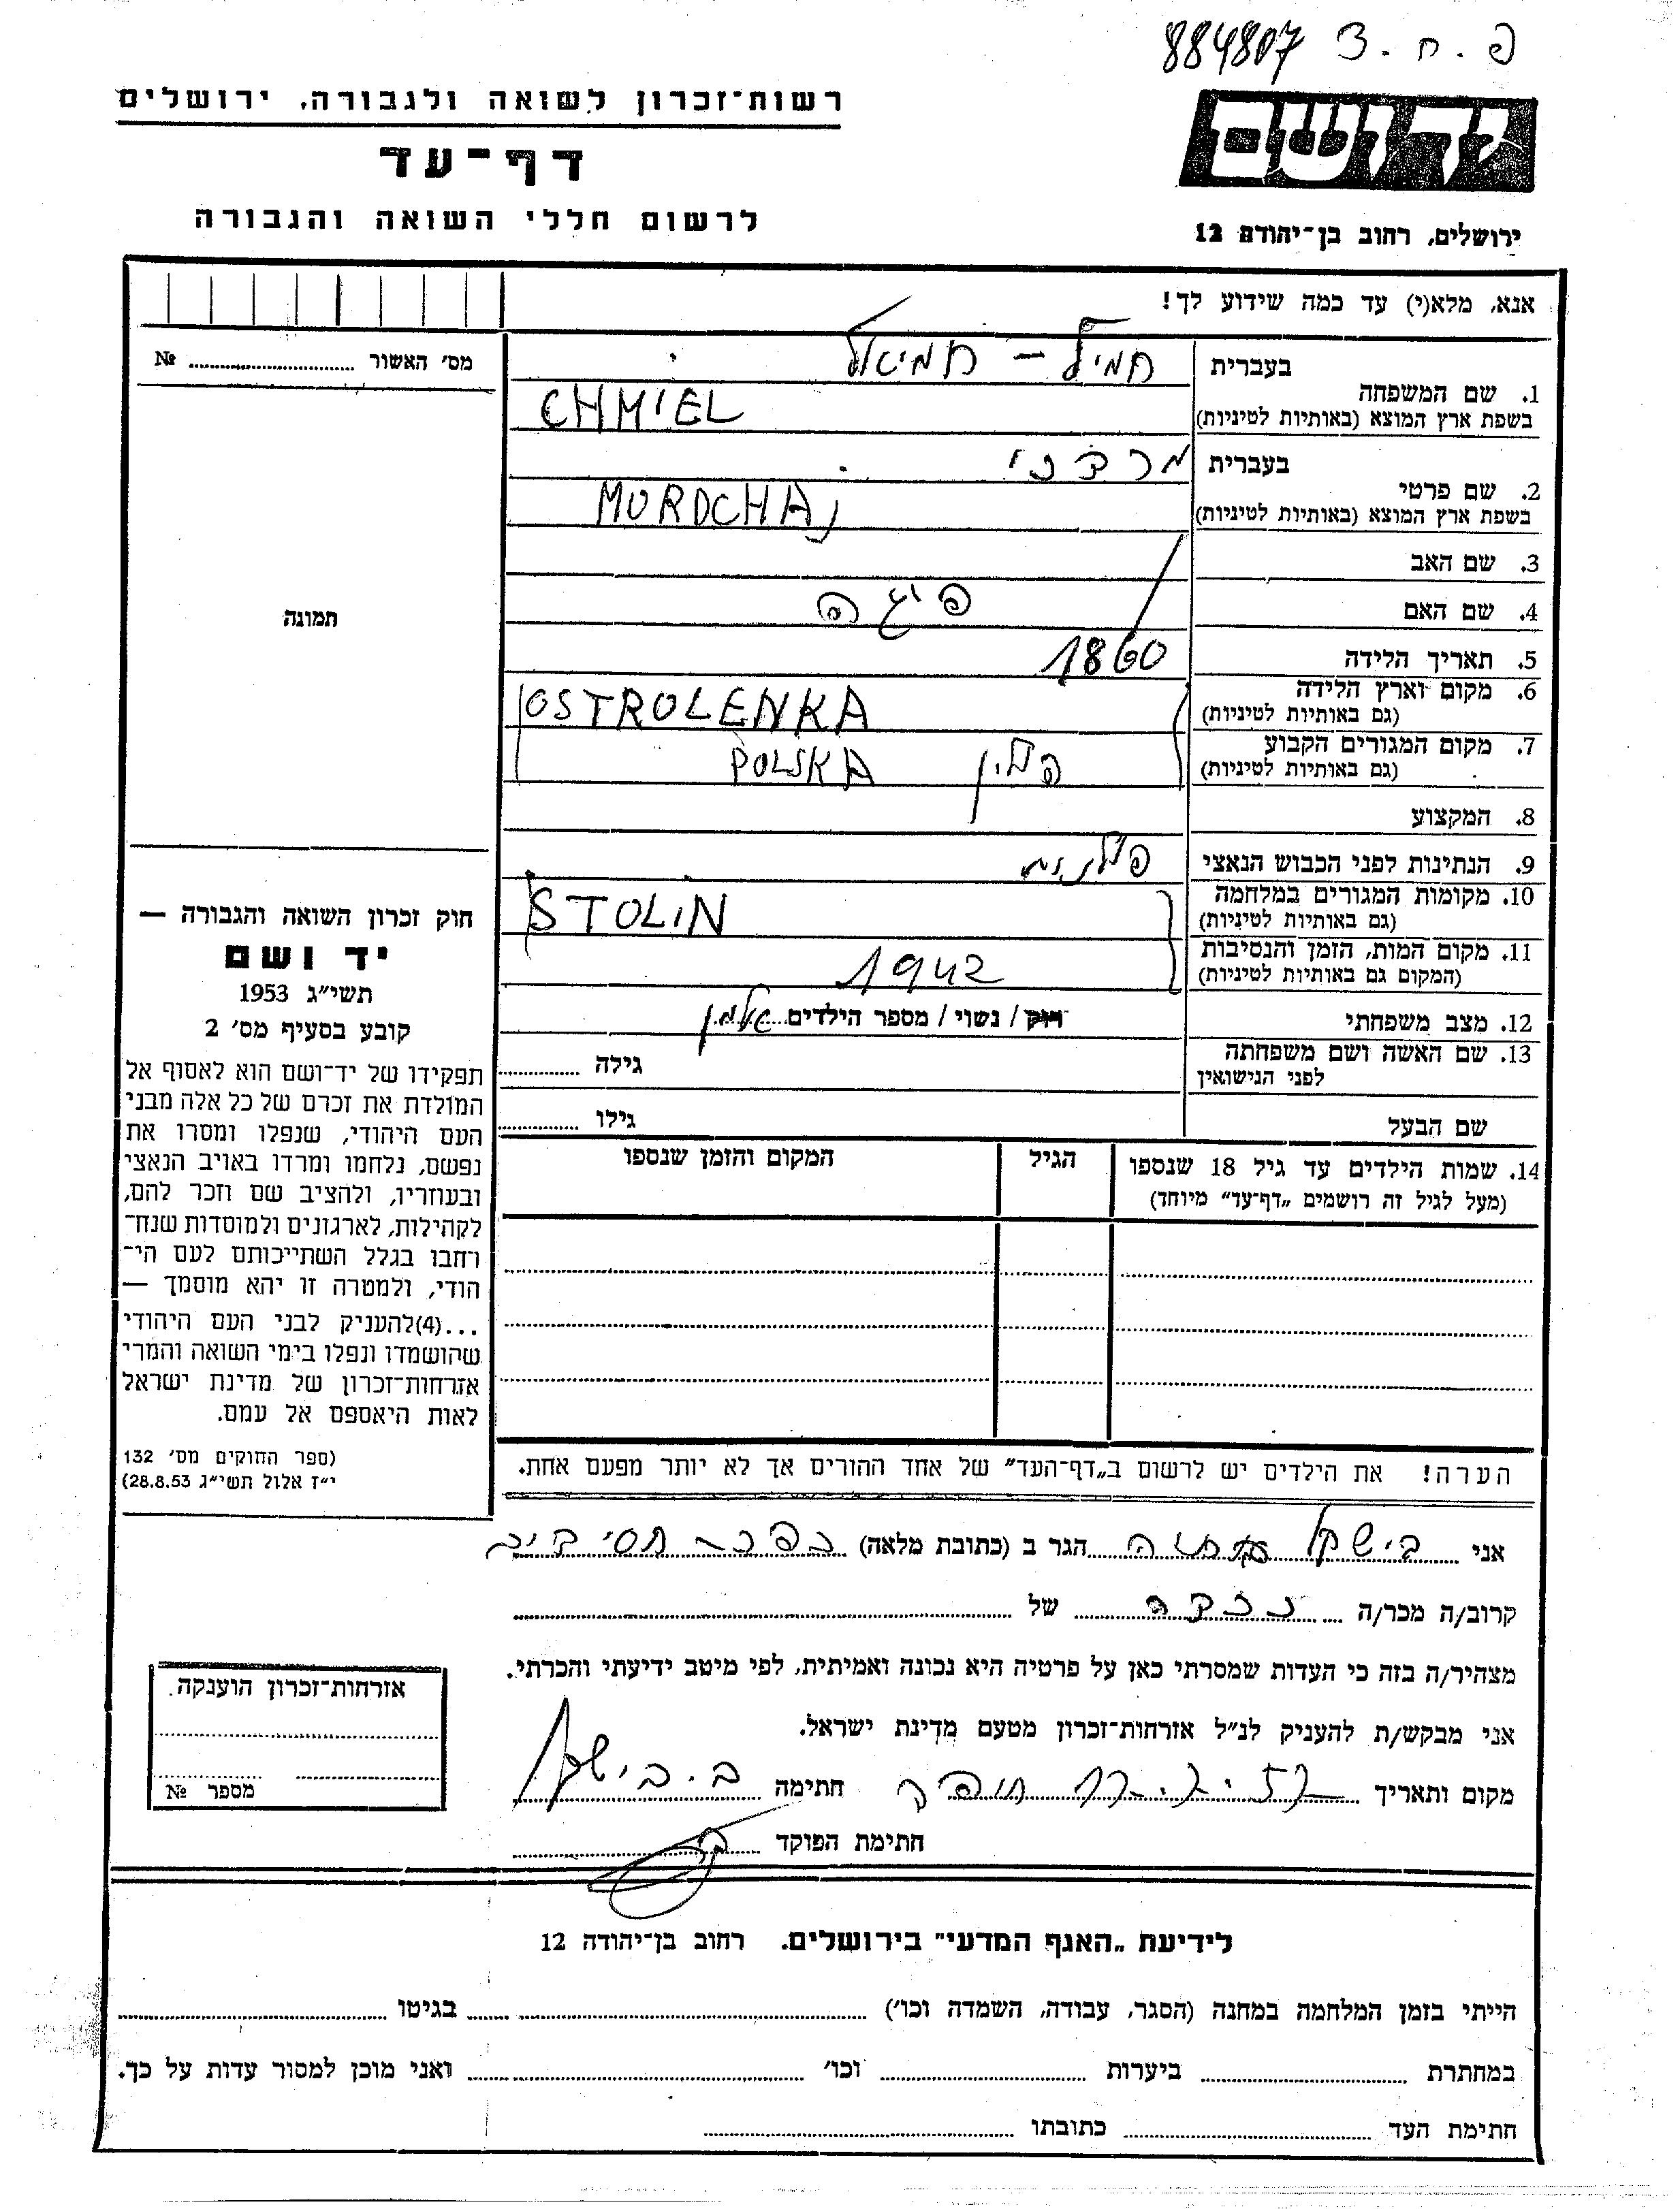 פ. ח. צ 884807
רשות־זכרון לשואה ולגבורה, ירושלים
יד ושם
דף־עד
לרשום חללי השואה והגבורה
ירושלים, רחוב בן־יהודה 12
אנא, מלא(י) עד כמה שידוע לך!
מס׳ האשור № ........
1. שם המשפחה
בעברית חמיל – חמיאל
בשפת ארץ המוצא (באותיות לטיניות) CHMIEL
2. שם פרטי
בעברית מרדכי
בשפת ארץ המוצא (באותיות לטיניות) MORDCHAJ
3. שם האב
4. שם האם פיגה
5. תאריך הלידה 1860
6. מקום וארץ הלידה
(גם באותיות לטיניות) OSTROLENKA
7. מקום המגורים הקבוע
(גם באותיות לטיניות) פולין POLSKA
8. המקצוע
9. הנתינות לפני הכבוש הנאצי פולנית
10. מקומות המגורים במלחמה
(גם באותיות לטיניות) STOLIN
11. מקום המות, הזמן והנסיבות
(המקום גם באותיות לטיניות) 1942
12. מצב משפחתי רווק / נשוי / מספר הילדים אלמן
13. שם האשה ושם משפחתה
לפני הנישואין גילה ........
שם הבעל גילו ........
14. שמות הילדים עד גיל 18 שנספו הגיל המקום והזמן שנספו
(מעל לגיל זה רושמים „דף־עד” מיוחד)
תמונה
חוק זכרון השואה והגבורה —
יד ושם
תשי״ג 1953
קובע בסעיף מס׳ 2
תפקידו של יד־ושם הוא לאסוף אל
המולדת את זכרם של כל אלה מבני
העם היהודי, שנפלו ומסרו את
נפשם, נלחמו ומרדו באויב הנאצי
ובעוזריו, ולהציב שם וזכר להם,
לקהילות, לארגונים ולמוסדות שנח־
רחבו בגלל השתייכותם לעם הי־
הודי, ולמטרה זו יהא מוסמך —
...(4)להעניק לבני העם היהודי
שהושמדו ונפלו בימי השואה והמרי
אזרחות־זכרון של מדינת ישראל
לאות היאספם אל עמם.
(ספר החוקים מס׳ 132
י״ז אלול תשי״ג 28.8.53)
הערה! את הילדים יש לרשום ב„דף־העד” של אחד ההורים אך לא יותר מפעם אחת.
אני בישקל הגר ב (כתובת מלאה) בכפר חסידים
קרוב/ה מכר/ה נכדה של ........
מצהיר/ה בזה כי העדות שמסרתי כאן על פרטיה היא נכונה ואמיתית, לפי מיטב ידיעתי והכרתי.
אני מבקש/ת להעניק לנ״ל אזרחות־זכרון מטעם מדינת ישראל.
מקום ותאריך חתימה ב. בישקל
חתימת הפוקד
אזרחות־זכרון הוענקה.
מספר №
לידיעת „האגף המדעי” בירושלים. רחוב בן־יהודה 12
הייתי בזמן המלחמה במחנה (הסגר, עבודה, השמדה וכו׳) ........ בגיטו ........
במחתרת ........ ביערות ........ וכו׳ ........ ואני מוכן למסור עדות על כך.
חתימת העד ........ כתובתו ........